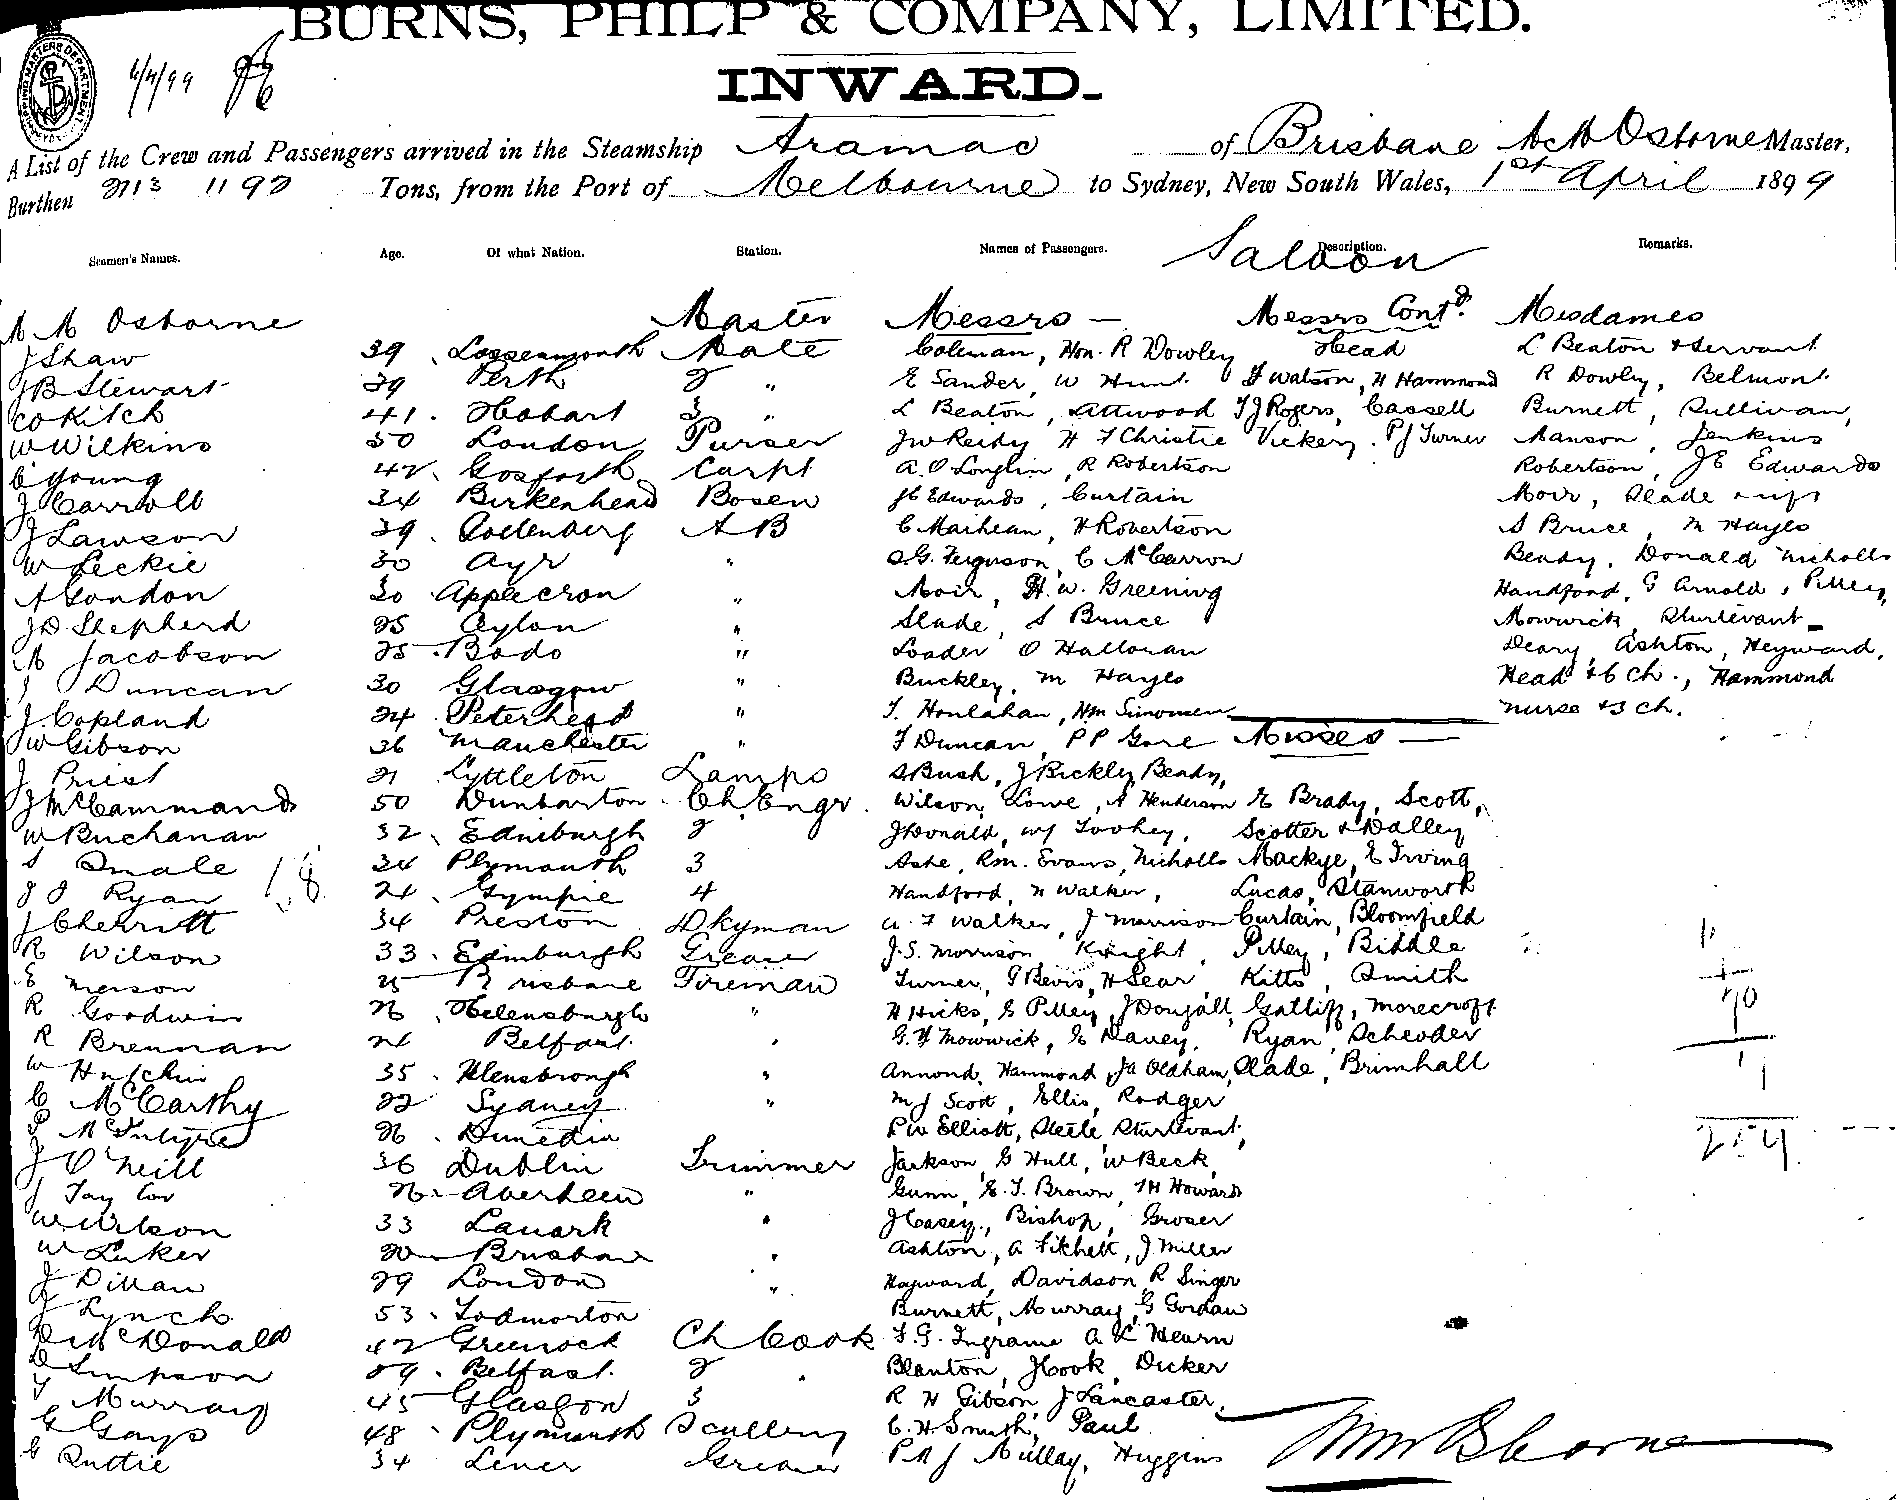 BURNS, PHILP & COMPANY, LIMITED.
INWARD.
4/4/99
A List of the Crew and Passengers arrived in the Steamship Aramac of Brisbane Osborne Master,
Burthen 2113 1192 Tons, from the Port of Melbourne to Sydney, New South Wales, 1st April 1899
Seamen's Names. Age. Of what Nation. Station. Names of Passengers. Description. Remarks.
Saloon
M M Osborne Master Messrs — Messrs Contd. Mesdames
J Shaw 39 Lossenmonth Mate Coleman, Hon. R Dowley Head L Beaton & servant
J B Stewart 39 Perth 2 " E Sander, W Hunt F Watson, H Hammond R Dowley, Belmont
C O Kitch 41. Hobart 3 " L Beaton, Attwood T J Rogers, Cassell Burnett, Sullivan,
W Wilkins 50 London Purser J W Reidy H F Christie Vickery. P J Turner Manson, Jenkins
C Young 42 Gosforth Carpt A. O Loughlin, R Robertson Robertson, J E Edwards
J Carroll 34 Birkenhead Bosen J E Edwards, Curtain Moir, Slade
J Lawson 39. Gottenberg A B C Maihean, H Robertson S Bruce, M Hayes
W Leckie 30 Ayr " S. G. Ferguson, C McCarron Beady, Donald Nicholls
A London 30 Applecron " Moir, H. W. Greening Handford, G Arnold, Pittey,
J D Shepherd 25 Ceylon " Slade, S Bruce Mowwick, Sturtevant
M Jacobson 25 Bodo " Loader O Halloran Deary, Ashton, Heyward,
J Duncan 30 Glasgow " Buckley, M Hayes Head & 6 ch., Hammond
J. Copland 24 Peterhead " T. Houlahan, Hm Simonsen nurse & 3 ch.
W Gibson 36 Manchester " F Duncan, P P Gore Misses —
J Priest 21 Lyttleton Lamps S Bush, J Bickley Beady,
J McCammand 50 Dunbarton Ch. Engr. Wilson, Lowe, A Henderson E Brady, Scott,
W Buchanan 32 Edinburgh 2 J Donald, W J Toohey, Scotter & Dalley
S Smale 34 Plymouth 3 Ashe, Rm. Evans, Nicholls Mackye, E Irving
J J Ryan 18 24. Gympie 4 Handford, N Walker, Lucas, Stanworth
J Cherritt 34 Preston Dkyman A. F Walker, J Morrison Curtain, Bloomfield
R Wilson 33. Edinburgh Greaser J. S. Morrison, Knight, Pittey, Biddle
E Merson 25 Brisbane Fireman Turner, G Bevis, H Sear, Kitts, Smith
R Goodwin 26 Helensburgh " H Hicks, E Pittey, J Dougall, Gatliff, Morecroft
R Brennan 24 Belfast " G. H Mowwick, E Davey, Ryan Schroder
W Hutchin 35 Helensbrongh " Annond, Hammond, J A Oldham, Slade, Brimhall
C McCarthy 22 Sydney " M J Scott, Ellis, Rodger
P McIntyre 26. Dunedin P W Elliott, Steele, Sturtevant,
J O'Neill 36 Dublin Trimmer Jackson, G Hull, W Beck,
J Taylor 26 Aberdeen " Gunn, E. T. Brown, T H Howard
W Wilson 33 Lanark " J Casey, Bishop, Groser
W Luker 20 Brisbane " Ashton, A Fitchett, J Miller
J Dillan 29 London " Hayward, Davidson, R Singer
J Lynch 53. Todmorton Burnett, Murray, G Gordan
D McDonald 42 Greenock Ch Cook F. G. Ingrame A L Hearn
D Simpson 29. Belfast 2 Blanton, J Cook, Dicker
T Murray 45 Glasgow 3 R H Gibson, J Lancaster,
G Gays 48 Plymouth Scullery C. H Smith, Paul
G Ruttie 34 Lever Greaser P A J Mullay, Huggins